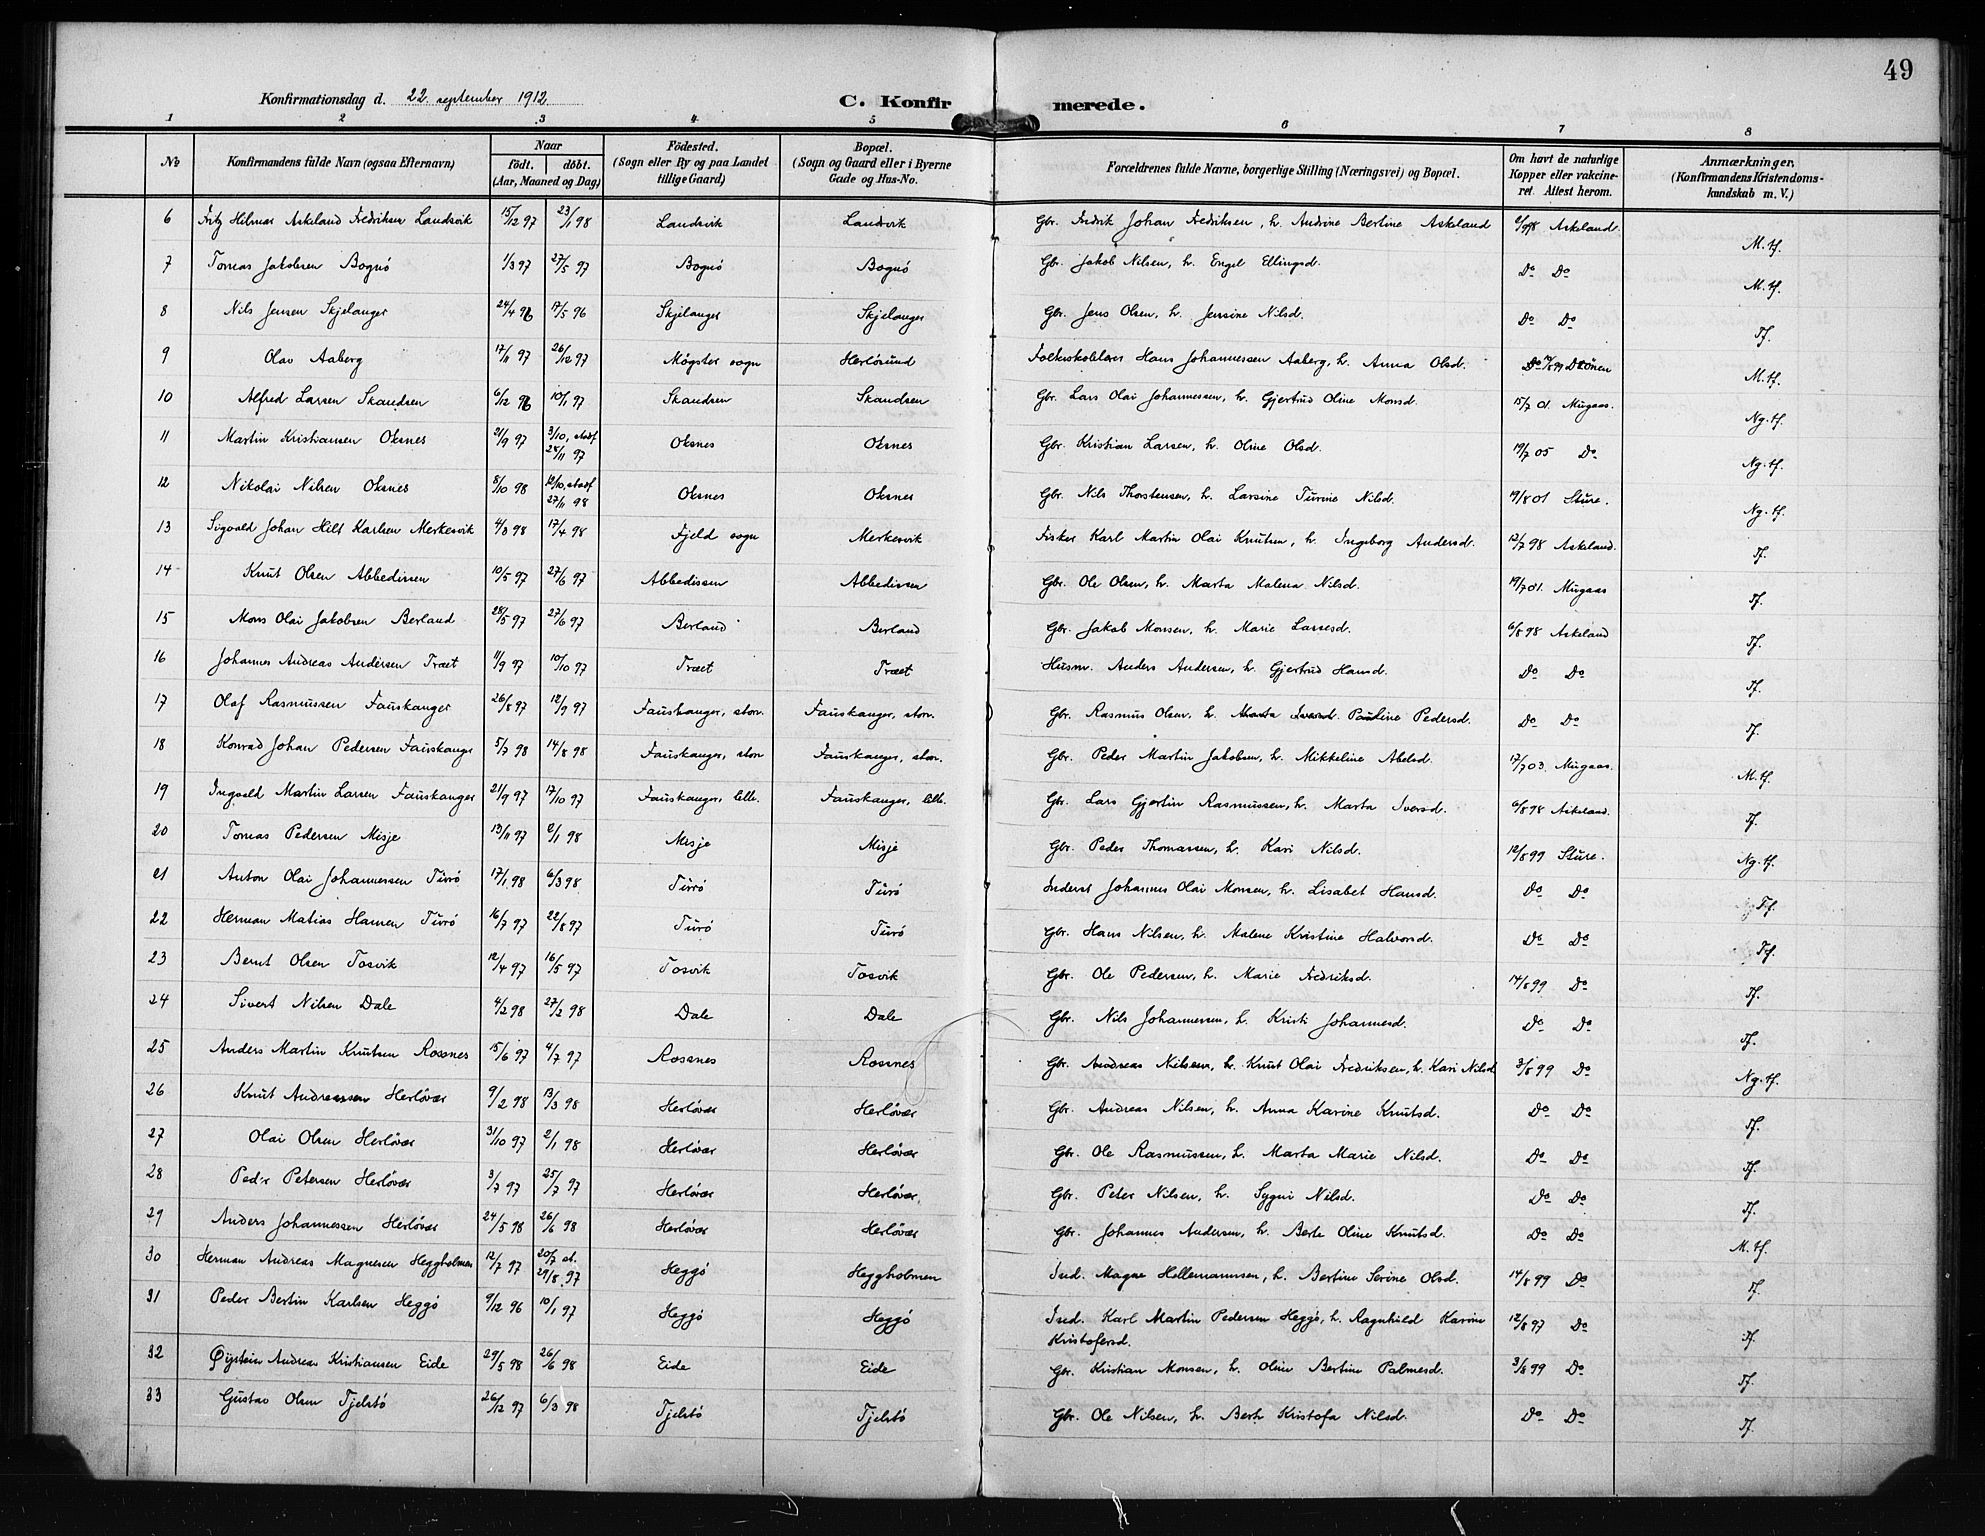 49
Konfirmationsdag d. 22. september 1912. C. Konfirmerede.
1 2 3 4 5 6 7 8
No Konfirmandens fulde Navn (ogsaa Efternavn) Naar født. døbt. (Aar, Maaned og Dag) Fødested. (Sogn eller By og paa Landet tillige Gaard) Bopæl. (Sogn og Gaard eller i Byerne Gade og Hus-No. Forældrenes fulde Navne, borgerlige Stilling (Næringsvei) og Bopæl. Om havt de naturlige Kopper eller vakcineret. Attest herom. Anmærkninger, (Konfirmandens Kristendomskundskab m. V.)
6 Fritz Hilmar Askeland Fredriksen Landsvik 15/12 97 23/1 98 Landsvik Landsvik Gbr. Fredrik Johan Fredriksen, h. Andrine Bertine Askeland Askeland. M. tf.
7 Tomas Jakobsen Bognö 1/3 97 27/5 97 Bognö Bognö Gbr. Jakob Nilsen, h. Engel Ellingsd. Do Do M. tf.
8 Nils Jensen Skjelanger 24/4 96 17/5 96 Skjelanger Skjelanger Gbr. Jens Olsen, h. Jensine Nilsd. Do Do Tf.
9 Olav Aaberg 17/11 97 26/12 97 Mögster sogn Herlösund Folkeskolelærer Hans Johannessen Aaberg, h. Anna Olsd. M. tf.
10 Alfred Larsen Skandsen 6/12 96 10/1 97 Skandsen Skandsen Gbr. Lars Olai Johannessen, h. Gjertrud Oline Monsd. 15/7 01. Mugaas. Ng. tf.
11 Martin Kristiansen Oksnes 21/9 97 3/10, stadf 28/11 97 Oksnes Oksnes Gbr. Kristian Larsen, h. Oline Olsd. 19/7 05 Do Ng. tf.
12 Nikolai Nilsen Oksnes 8/10 98 12/10, stadf 27/11 98 Oksnes Oksnes Gbr. Nils Thorstensen, h. Larsine Turine Nilsd. 19/8 01 Sture. Ng. tf.
13 Sigvald Johan Hilt Karlsen Merkesvik 4/3 98 17/4 98 Fjeld sogn Merkesvik Fisker Karl Martin Olai Knutsen, h. Ingeborg Andersd. 12/7 98 Askeland. Tf.
14 Knut Olsen Abbedissen 10/5 97 27/6 97 Abbedissen Abbedissen Gbr. Ole Olsen, h. Marta Malena Nilsd. 19/7 01. Mugaas Tf.
15 Mons Olai Jakobsen Berland 28/5 97 27/6 97 Berland Berland Gbr. Jakob Monsen, h. Marie Larsesd. 6/8 98 Askeland Tf.
16 Johannes Andreas Andersen Træet 11/9 97 10/10 97 Træet Træet Husm. Anders Andersen, h. Gjertrud Hansd. Do Do Tf.
17 Olaf Rasmussen Fauskanger 26/8 97 12/9 97 Fauskanger, stor. Fauskanger, stor. Gbr. Rasmus Olsen, h. Marta Iversd. Pauline Pedersd. Do Do Tf.
18 Konrad Johan Pedersen Fauskanger 5/7 98 14/8 98 Fauskanger, stor Fauskanger, stor. Gbr. Peder Martin Jakobsen, h. Mikkeline Abelsd. 17/7 03. Mugaas. M. tf.
19 Ingvald Martin Larsen Fauskanger 21/9 97 17/10 97 Fauskanger, lille. Fauskanger, lille. Gbr. Lars Gjertin Rasmussen, h. Marta Iversd. 6/8 98 Askeland. Tf.
20 Tomas Pedersen Misje 13/11 97 2/1 98 Misje Misje Gbr. Peder Thomassen, h. Kari Nilsd. 12/8 99 Sture. Ng. tf.
21 Anton Olai Johannessen Turö 17/1 98 6/3 98 Turö Turö Inderst Johannes Olai Monsen, h. Lisabet Hansd. Do Do Tf.
22 Herman Matias Hansen Turö 16/7 97 22/8 97 Turö Turö Gbr. Hans Nilsen, h. Malene Kristine Halvorsd. Do Do Tf.
23 Bernt Olsen Tosvik 12/4 97 16/5 97 Tosvik Tosvik Gbr. Ole Pedersen, h. Marie Fredriksd. 14/8 99 Do Tf.
24 Sivert Nilsen Dale 4/2 98 27/2 98 Dale Dale Gbr. Nils Johannessen, h. Kristi Johannesd. Do Do Tf.
25 Anders Martin Knutsen Rossnes 15/6 97 4/7 97 Rossnes Rossnes Gbr. Andreas Nilsen, h. Knut Olai Fredriksen, h. Kari Nilsd 3/8 99 Do Ng. tf.
26 Knut Andreassen Herlövær 9/2 98 13/3 98 Herlövær Herlövær Gbr. Andreas Nilsen, h. Anna Karine Knutsd. Do Do Tf.
27 Olai Olsen Herlövær 31/10 97 2/1 98 Herlövær Herlövær Gbr. Ole Rasmussen, h. Marta Marie Nilsd. Do Do Tf.
28 Peder Petersen Herlövær 3/7 97 25/7 97 Herlövær Herlövær, Gbr. Peter Nilsen, h. Sygni Nilsd. Do Do Tf.
29 Anders Johannessen Herlövær 24/5 98 26/6 98 Herlövær Herlövær Gbr. Johannes Andersen, h. Berte Oline Knutsd. Do Do M. tf.
30 Herman Andreas Magnesen Heggholmen 12/7 97 20/7 st. 29/8 97 Heggö Heggholmen Ind. Magne Hellemannsen, h. Bertine Serine Olsd. 14/8 99 Do Tf.
31 Peder Bertin Karlsen Heggö 9/12 96 10/1 97 Heggö Heggö Ind. Karl Martin Pedersen Heggö, h. Ragnhild Karine Kristofersd. 12/8 97 Do Tf.
32 Øystein Andreas Kristiansen Eide 29/5 98 26/6 98 Eide Eide Gbr. Kristian Monsen, h. Oline Bertine Palmesd. 3/8 99 Do Tf.
33 Gustav Olsen Tjelstö 26/12 97 6/3 98 Tjelstö Tjelstö Gbr. Ole Nilsen, h. Berte Kristofa Nilsd. Do Do Tf.